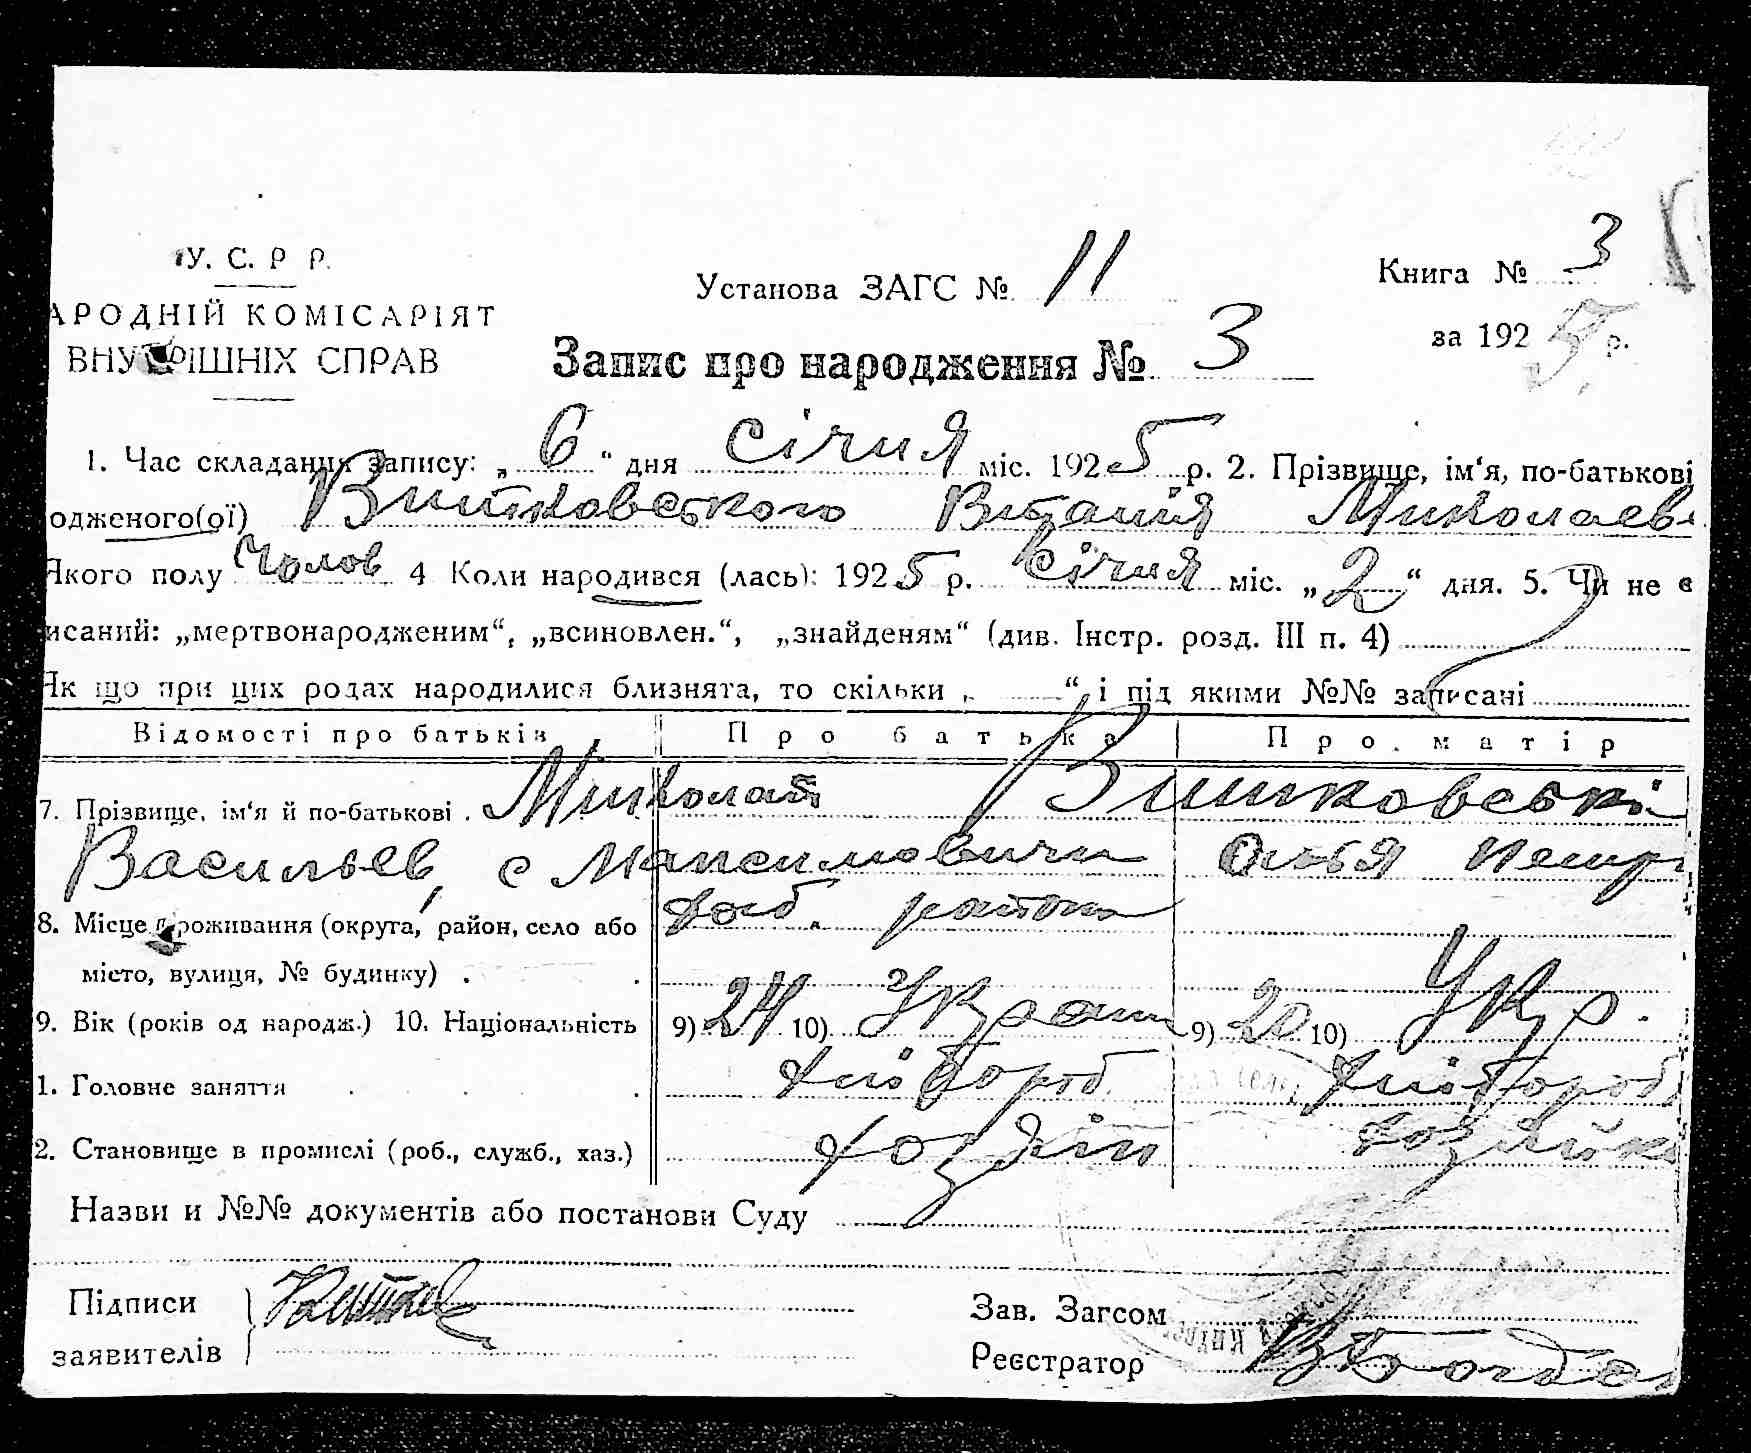 У. С. Р Р.
АРОДНІЙ КОМІСАРІЯТ
ВНУТРІШНІХ СПРАВ
Установа ЗАГС № 11
Книга № 3
за 192 5 р.
Запис про народження № 3
1. Час складання запису: „ 6 “ дня січня міс. 192 5 р. 2. Прізвище, ім‘я, по-батькові
одженого(ої) Витковського Віталія Миколаев
Якого полу чолов 4 Коли народився (лась): 192 5 р. січня міс. „ 2 “ дня. 5. Чи не є
исаний: „мертвонародженим“, „всиновлен.“, „знайденям“ (див. Інстр. розд. III п. 4)
Як що при цих родах народилися близнята, то скільки „ “ і під якими №№ записані
Відомості про батьків Про батька Про матір
7. Прізвище, ім‘я й по-батькові . Миколай Витковські
Васильев, с Максимовичи Петр
8. Місце проживання (округа, район, село або район
місто, вулиця, № будинку) .
9. Вік (років од народж.) 10. Національність 9) 24 10) Украин 9) 20 10) Укр.
1. Головне заняття . . . хлібороб хлібороб
2. Становище в промислі (роб., служб., хаз.) хозяін хозяйка
Назви и №№ документів або постанови Суду
Підписи
заявителів
Зав. Загсом
Реєстратор